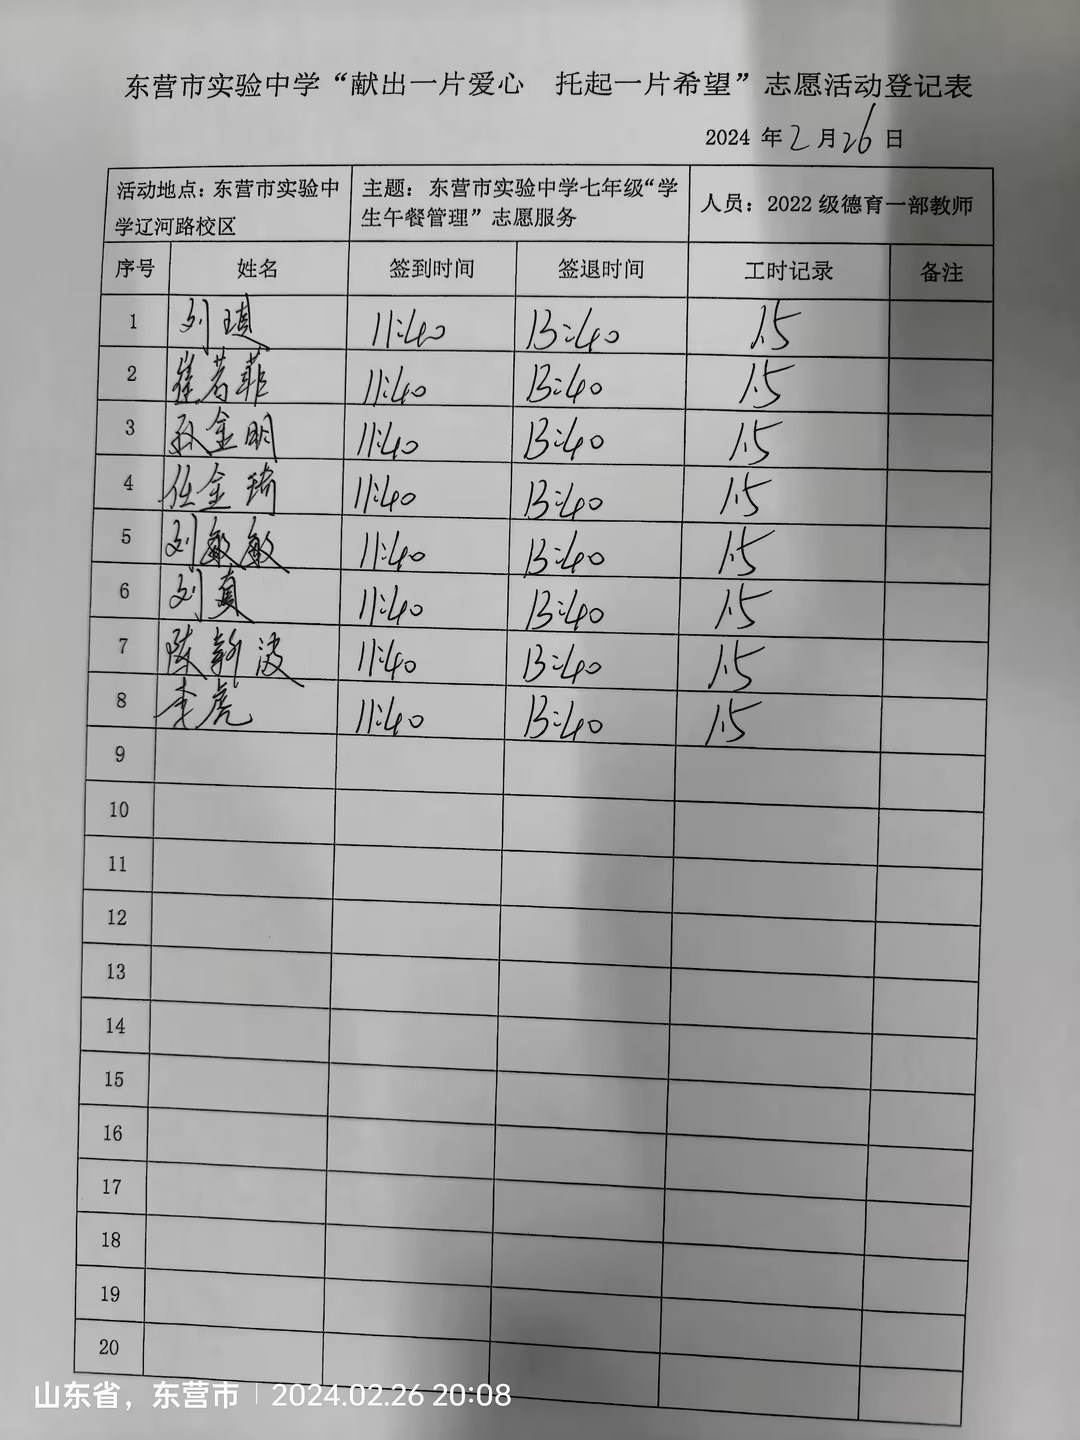 东营市实验中学“献出一片爱心 托起一片希望”志愿活动登记表
2024 年 2 月 26 日
活动地点：东营市实验中学辽河路校区 主题：东营市实验中学七年级“学生午餐管理”志愿服务 人员：2022 级德育一部教师
序号 姓名 签到时间 签退时间 工时记录 备注
1 刘 11:40 13:40 1.5
2 崔若菲 11:40 13:40 1.5
3 金明 11:40 13:40 1.5
4 任金琦 11:40 13:40 1.5
5 刘敏敏 11:40 13:40 1.5
6 刘真 11:40 13:40 1.5
7 陈新波 11:40 13:40 1.5
8 李虎 11:40 13:40 1.5
9
10
11
12
13
14
15
16
17
18
19
20
山东省，东营市 | 2024.02.26 20:08